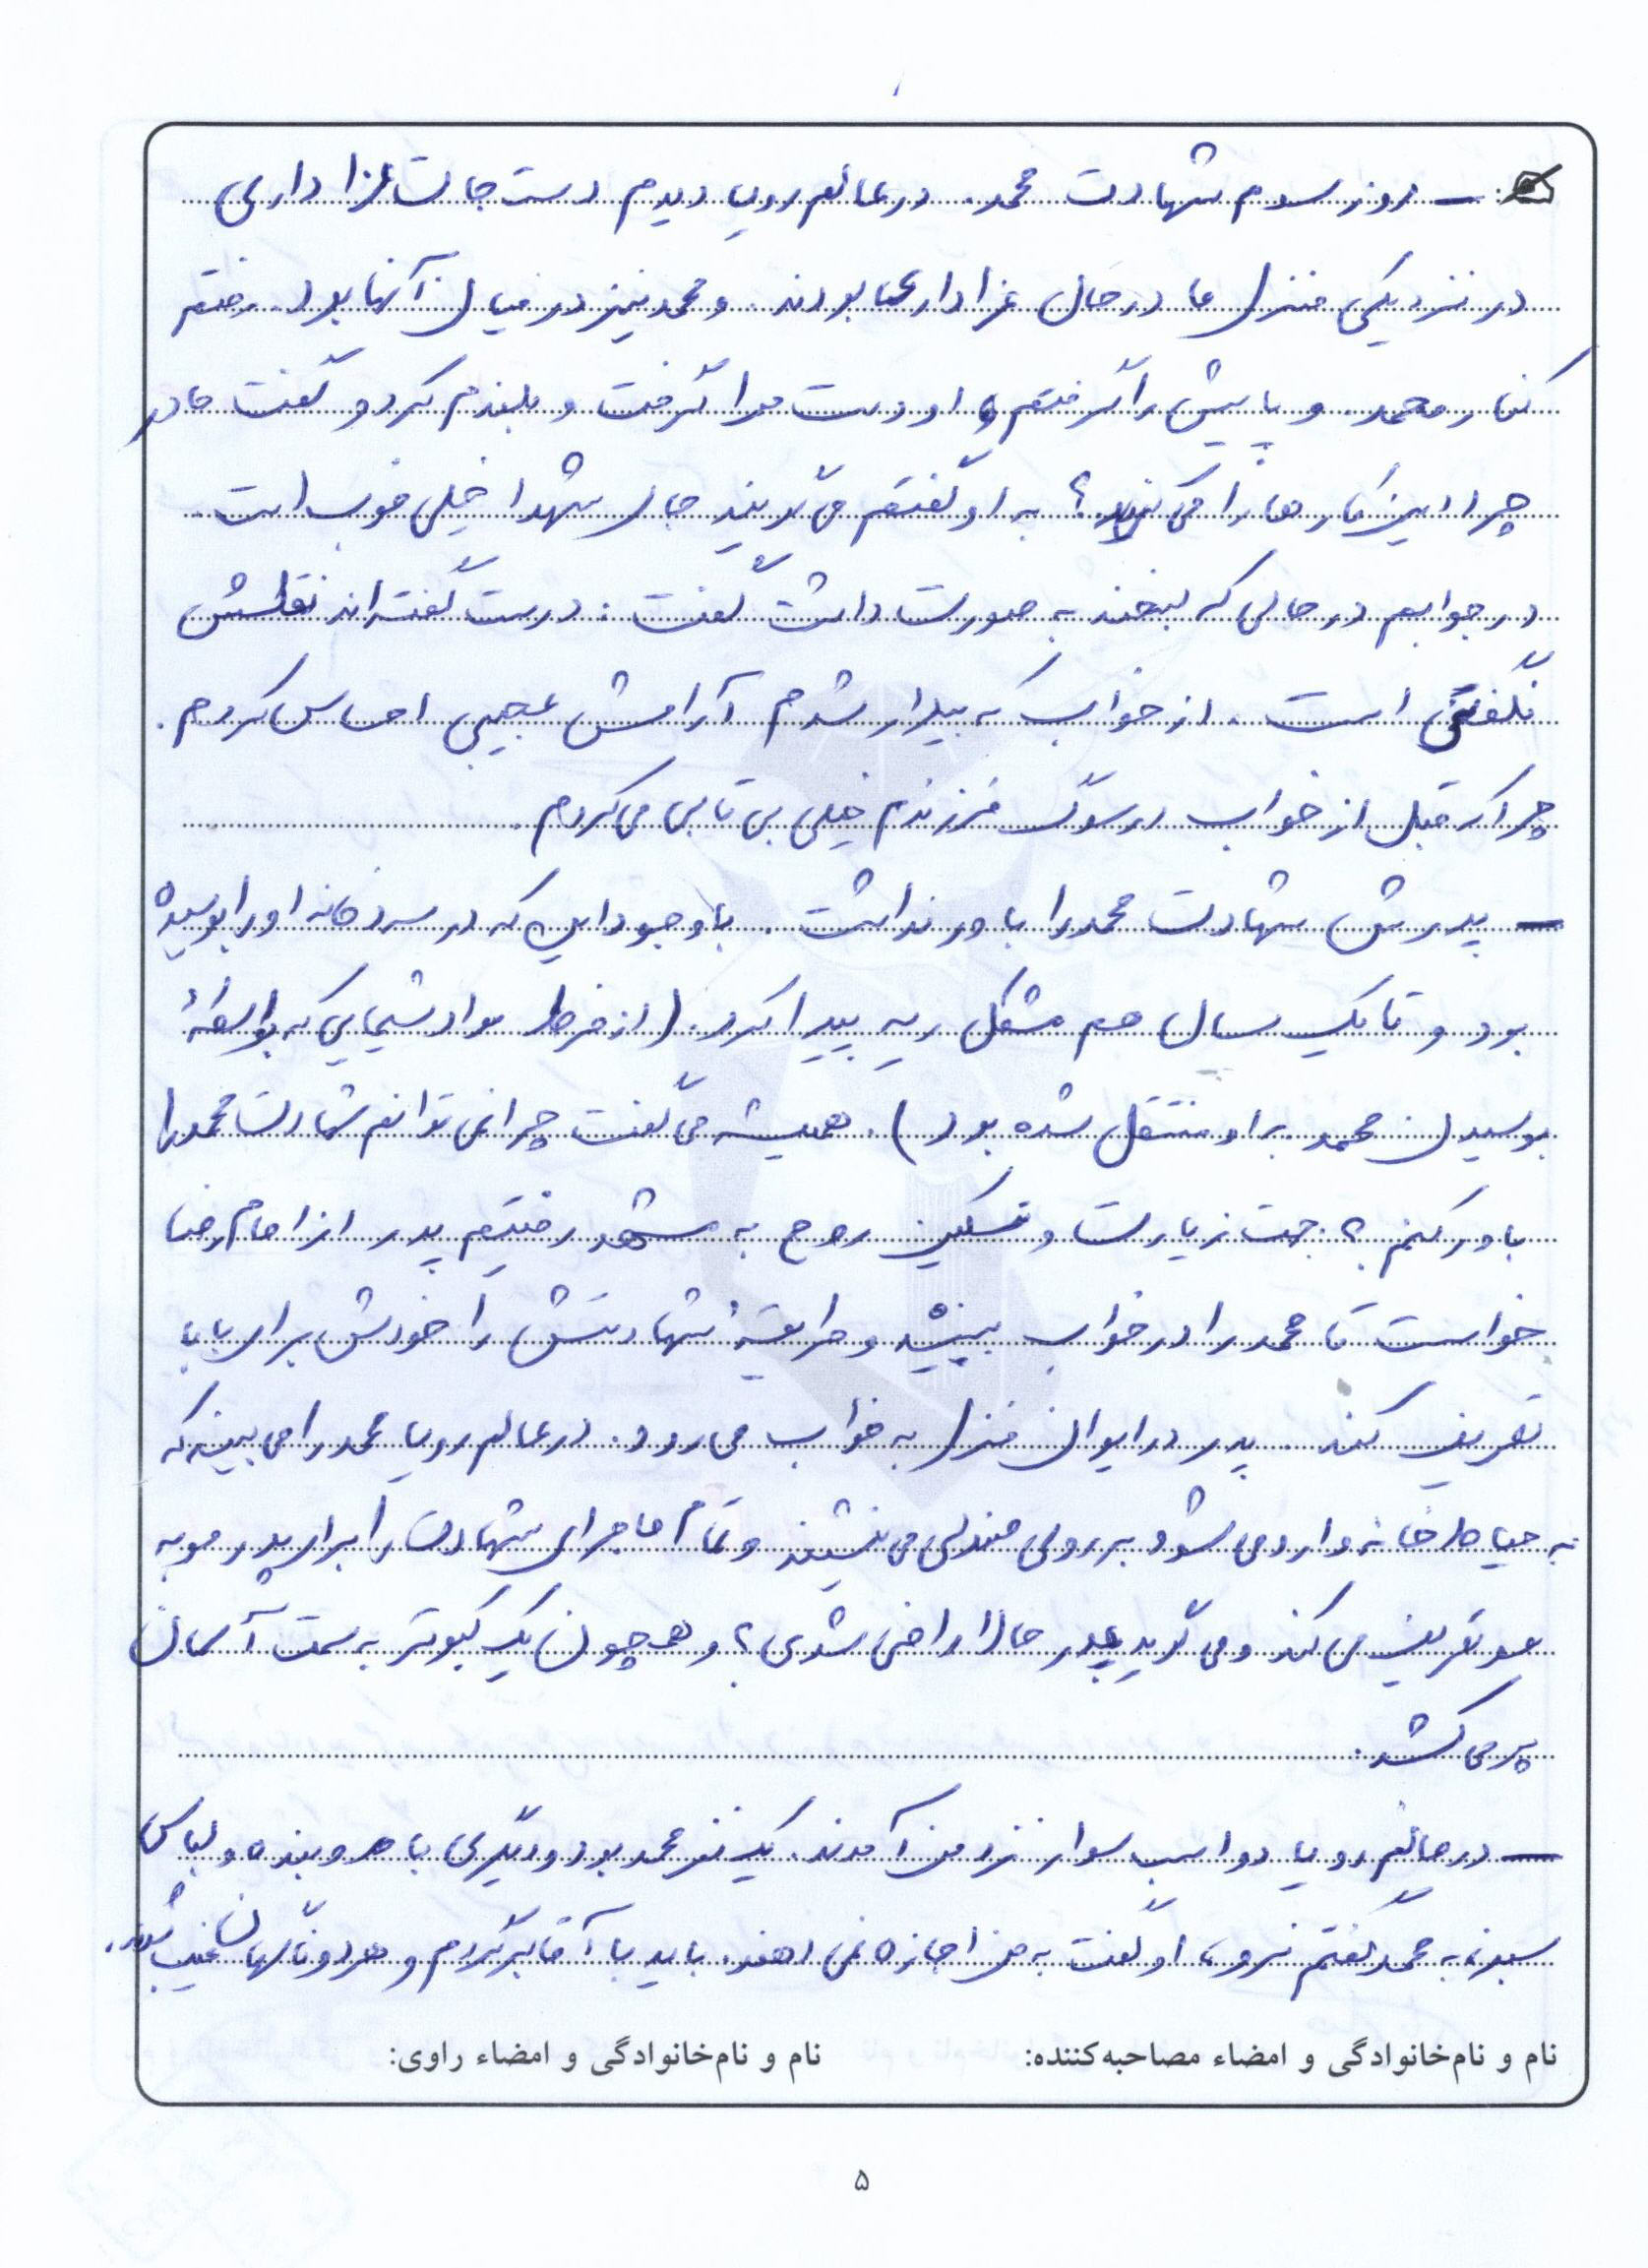 ـ روز سوم شهادت محمد. در عالم رویا دیدم دستجات عزاداری
در نزدیکی منزل ما در حال عزاداری بودند. و محمد نیز در میان آنها بود. رفتم
کنار محمد. و پایش را گرفتم و او دست مرا گرفت و بلندم کرد و گفت مادر
چرا این کارها را می کنید؟ به او گفتم می گویند جای شهدا خیلی خوب است.
در جوابم در حالی که لبخند به صورت داشت گفت: درست گفته اند نقلش
نگفتنی است. از خواب که بیدار شدم آرامش عجیبی احساس کردم.
چرا که قبل از خواب در سوگ فرزندم خیلی بی تابی می کردم.
ـ پدرش شهادت محمد را باور نداشت. با وجود این که در سردخانه او را بوسیده
بود و تا یک سال هم مشکل ریه پیدا کرد. (از فرط مواد شیمایی که بواسطهٔ
بوسیدن محمد بر او منتقل شده بود). همیشه می گفت چرا نمی توانم شهادت محمد را
باور کنم؟ جهت زیارت و تسکین روح به مشهد رفتیم پدر از امام رضا
خواست تا محمد را در خواب ببیند و طریقهٔ شهادتش را خودش برای بابا
تعریف کند. پدر در ایوان منزل به خواب می رود. در عالم رویا محمد را می بیند که
به حیاط خانه وارد می شود بر روی صندلی می نشیند و تمام ماجرای شهادت را برای پدر مو به
مو تعریف می کند و می گوید پدر حالا راضی شدی؟ و همچون یک کبوتر به سمت آسمان
پر می کشد.
ـ در عالم رویا دو اسب سوار نزد من آمدند. یک نفر محمد بود و دیگری با روبنده و لباس
سبز، به محمد گفتم نرو، او گفت به من اجازه نمی دهند. باید با آقا برگردم و هر دو ناگهان غیب شدند.
نام و نام‌خانوادگی و امضاء مصاحبه‌کننده: نام و نام‌خانوادگی و امضاء راوی:
۵